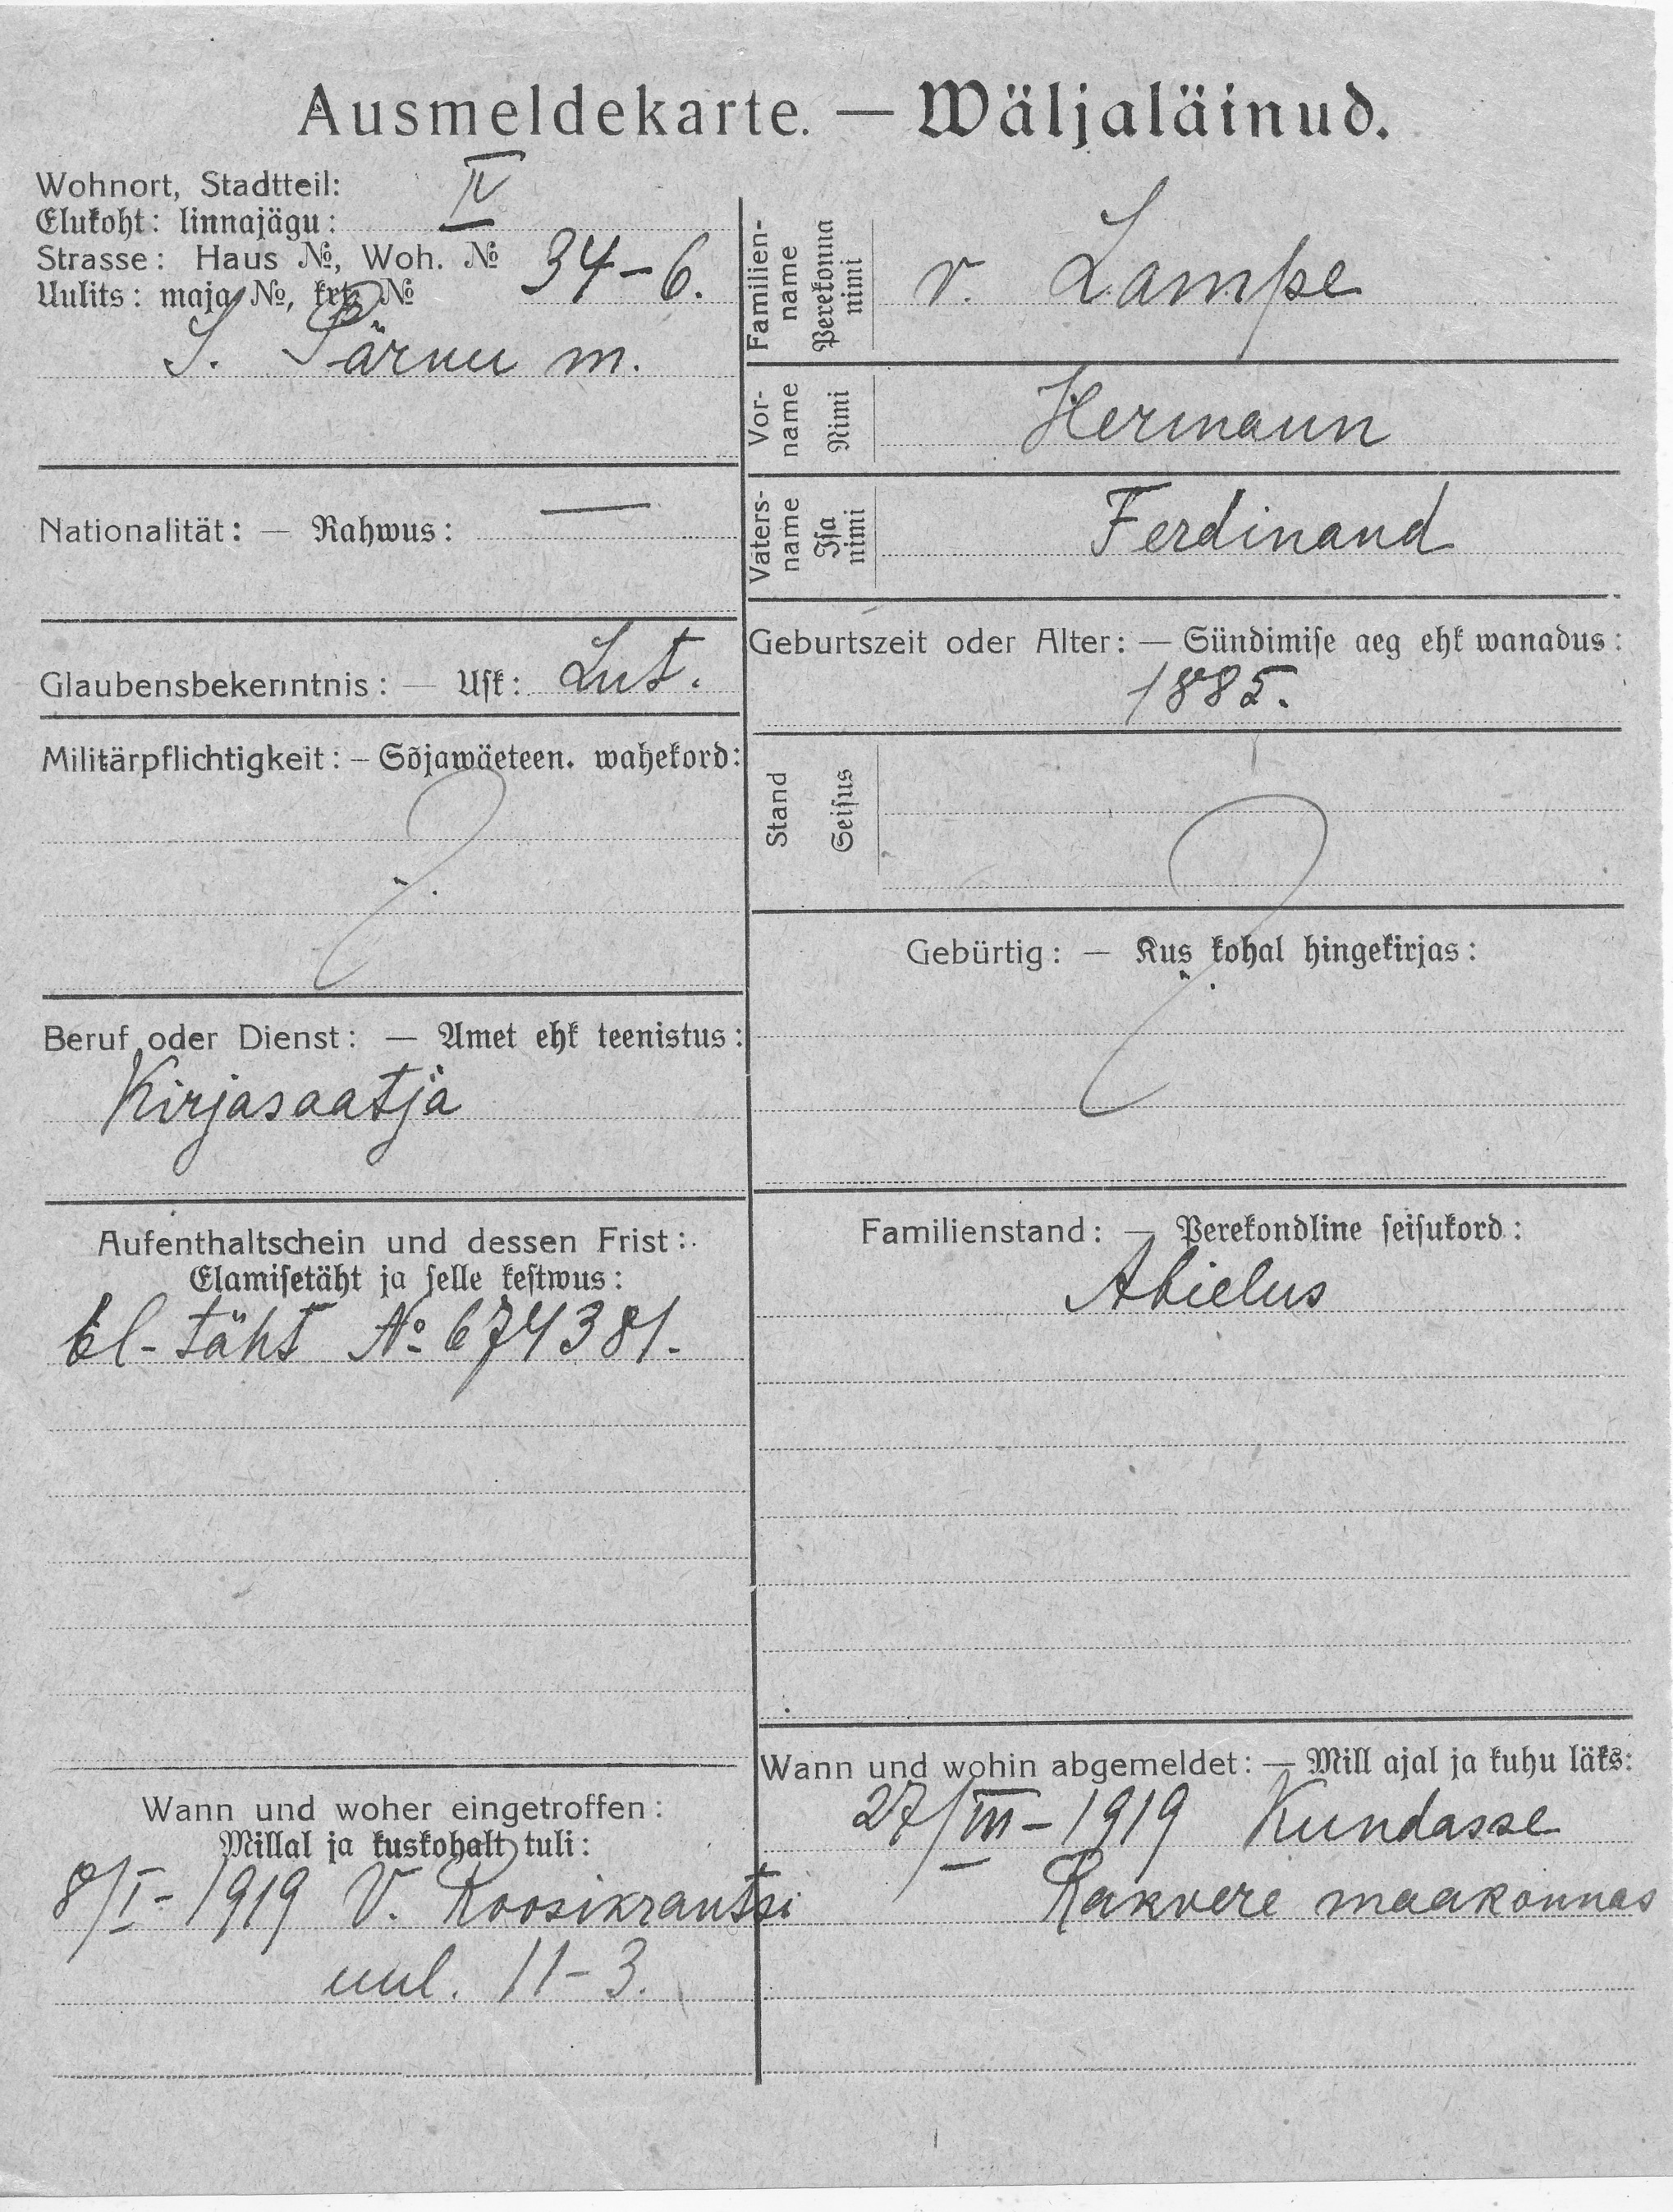 Ausmeldekarte. — Wäljaläinud.
Wohnort, Stadtteil:
Elukoht: linnajägu: IV
Strasse: Haus №, Woh. № 34-6.
Uulits: maja №, krt. №
S. Pärnu m.
Nationalität: — Rahwus: —
Glaubensbekenntnis: — Usk: Lut.
Militärpflichtigkeit: – Sõjawäeteen. wahekord:
?
Beruf oder Dienst: — Amet ehk teenistus:
Kirjasaatja
Aufenthaltschein und dessen Frist:
Elamisetäht ja selle kestwus:
El-täht № 674381.
Wann und woher eingetroffen:
Millal ja kuskohalt tuli:
8/I-1919 V. Roosikrantsi
uul. 11-3.
Familien-
name
Perekonna
nimi
v. Lampe
Vor-
name
Nimi
Hermann
Vaters-
name
Isa
nimi
Ferdinand
Geburtszeit oder Alter: — Sündimise aeg ehk wanadus:
1885.
Stand
Seisus
?
Gebürtig: — Kus kohal hingekirjas:
Familienstand: — Perekondline seisukord:
Abielus
Wann und wohin abgemeldet: — Mill ajal ja kuhu läks:
27/III-1919 Kundasse
Rakvere maakonnas